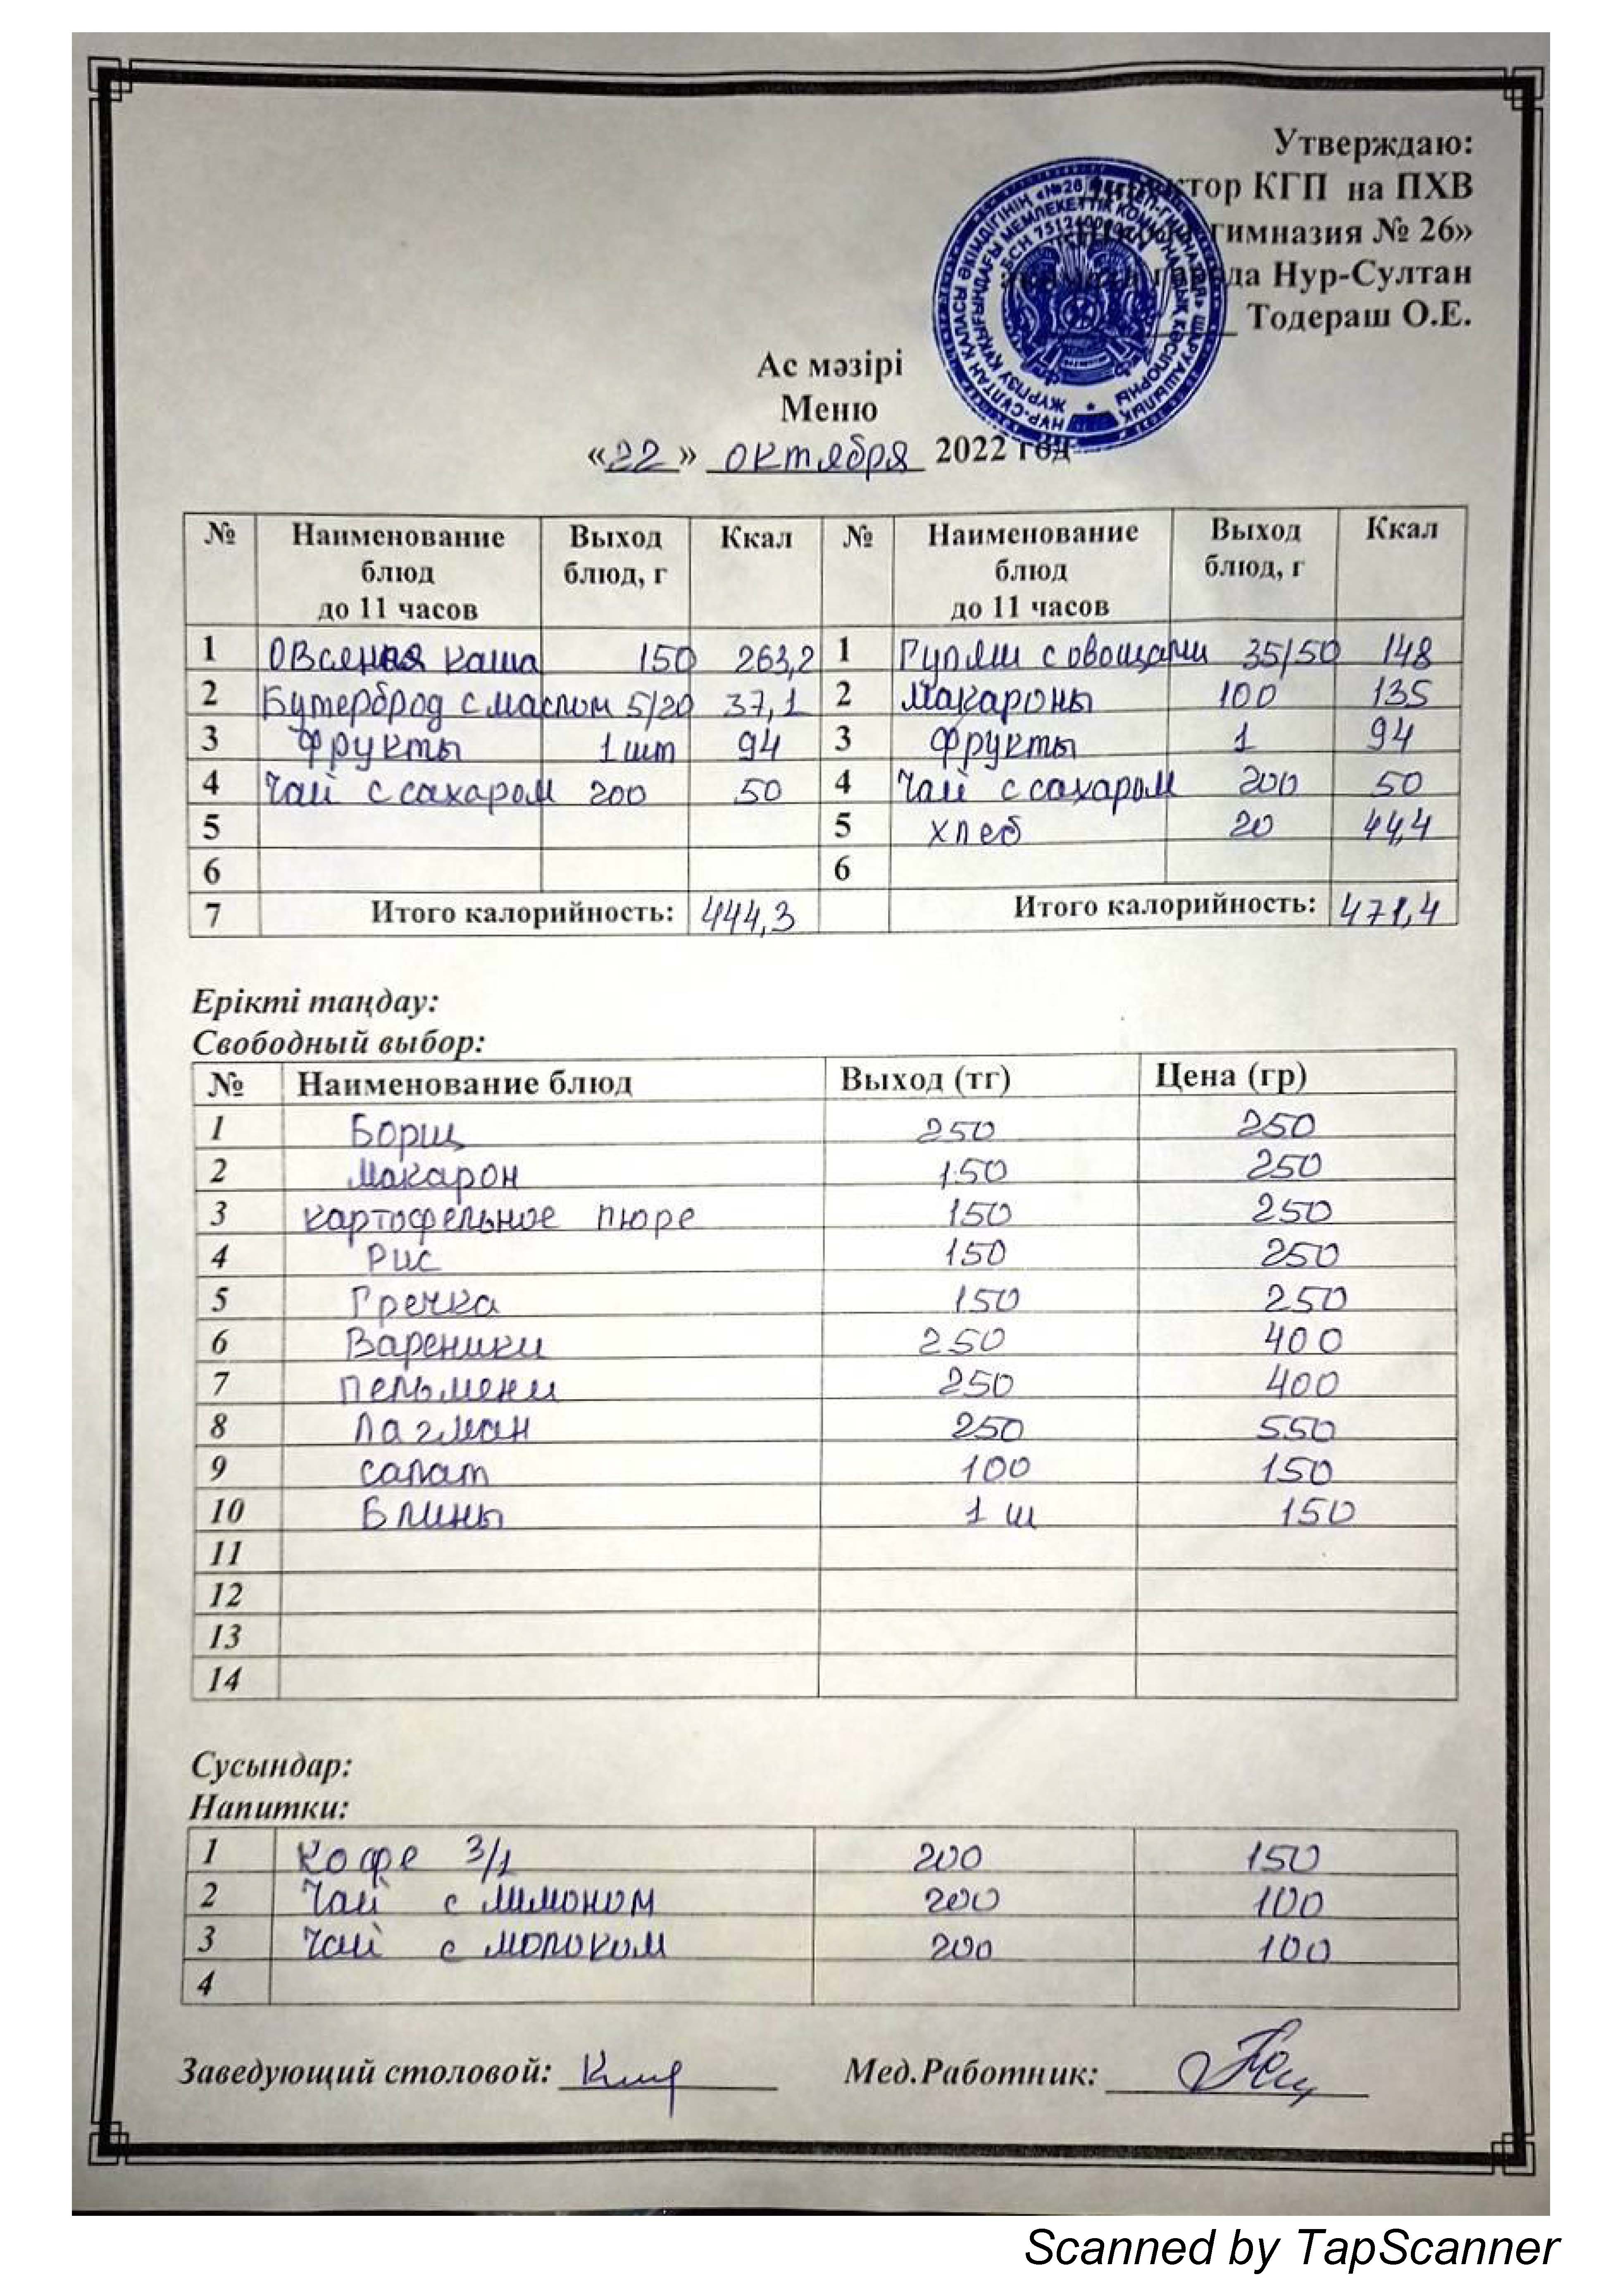 Утверждаю:
Директор КГП на ПХВ
гимназия № 26»
города Нур-Султан
Тодераш О.Е.
Ас мәзірі
Меню
«22» октября 2022 год
№ Наименование блюд до 11 часов Выход блюд, г Ккал № Наименование блюд до 11 часов Выход блюд, г Ккал
1 Овсяная каша 150 263,2 1 Гуляш с овощами 35/50 148
2 Бутерброд с маслом 5/20 37,1 2 Макароны 100 135
3 Фрукты 1 шт 94 3 Фрукты 1 94
4 Чай с сахаром 200 50 4 Чай с сахаром 200 50
5 5 хлеб 20 44,4
6 6
7 Итого калорийность: 444,3 Итого калорийность: 471,4
Ерікті таңдау:
Свободный выбор:
№ Наименование блюд Выход (тг) Цена (гр)
1 Борщ 250 250
2 Макарон 150 250
3 картофельное пюре 150 250
4 Рис 150 250
5 Гречка 150 250
6 Вареники 250 400
7 Пельмени 250 400
8 Лагман 250 550
9 салат 100 150
10 Блины 1 ш 150
11
12
13
14
Сусындар:
Напитки:
1 Кофе 3/1 200 150
2 Чай с лимоном 200 100
3 Чай с молоком 200 100
4
Заведующий столовой: Мед.Работник:
Scanned by TapScanner